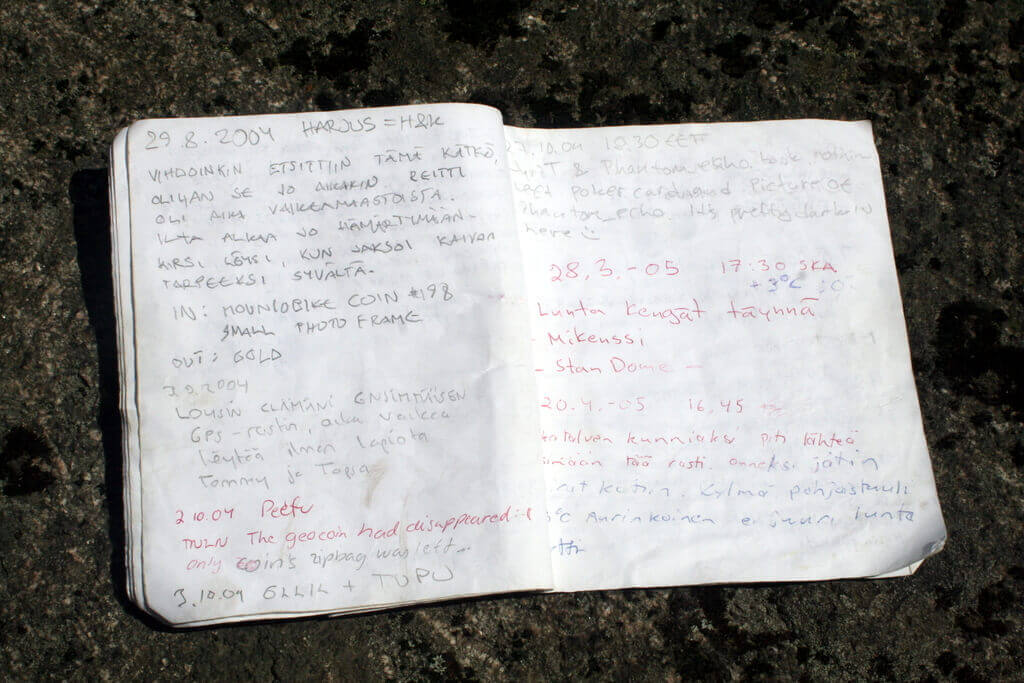 29.8.2004 HARJUS = H&K
VIHDOINKIN ETSITTIIN TÄMÄ KÄTKÖ,
OLIHAN SE JO AIKAKIN REITTI
OLI AIKA VAIKEAMAASTOISTA.
ILTA ALKAA JO HÄMÄRTYMÄÄN.
KIRSI LÖYSI, KUN JAKSOI KAIVAA
TARPEEKSI SYVÄLTÄ.
IN: COIN #198
SMALL PHOTO FRAME
OUT: GOLD
3.9.2004
LÖYSIN ELÄMÄNI ENSIMMÄISEN
GPS-rastin, aika vaikea
löytää ilman lapiota
Tommy ja Topsa
2.10.04 Peefu
TNLN The geocoin had disappeared :(
only coin's zipbag was left...
3.10.04 + TUPU
.10.04 EET
& Phantom_echo. took nothing
poker card and Picture of
Phantom_echo. It's pretty dark in
here
28.3.-05 17:30 SKA
+3°C :O
Lunta kengät täynnä
- Mikenssi
- Stan Dome -
20.4.-05 16.45
talven kunniaksi piti lähteä
tää rasti. onneksi jätin
kotiin. Kylmä pohjastuuli
°C Aurinkoinen ei juuri lunta